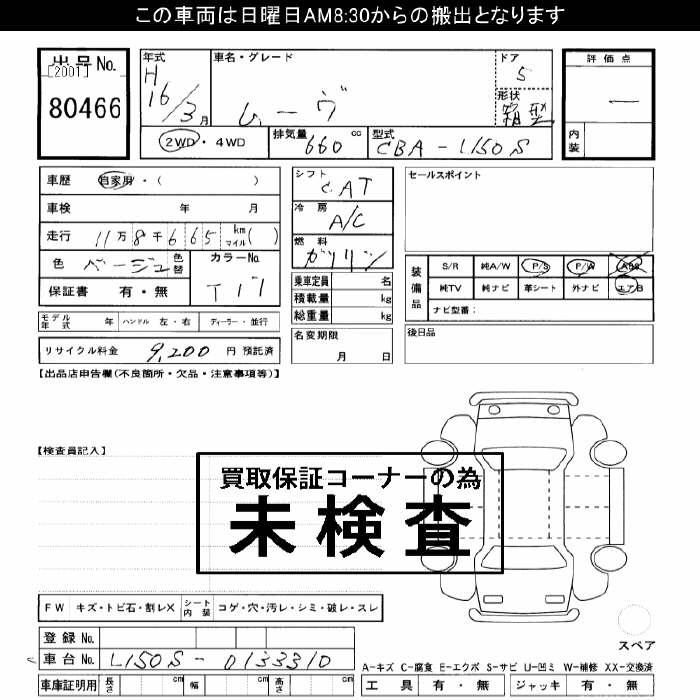 この車両は日曜日AM8:30からの搬出となります
出品No.
[2001]
80466
年式 H 16/3 月
車名・グレード ムーヴ
ドア 5
形状 箱型
2WD・4WD
排気量 660 cc
型式 CBA-L150S
評価点
内装
車歴 自家用・( )
車検 年 月
走行 11万8千665 km マイル( )
色 ベージュ 色替
カラーNo. T17
保証書 有・無
シフト CAT
冷房 A/C
燃料 ガソリン
乗車定員 名
積載量 kg
総重量 kg
セールスポイント
装備品
S/R 純A/W P/S P/W ABS
純TV 純ナビ 革シート 外ナビ エアB
ナビ型番:
モデル年式 年 ハンドル 左・右 ディーラー・並行
リサイクル料金 9,200 円 預託済
名変期限 月 日
後日品
【出品店申告欄(不良箇所・欠品・注意事項等)】
【検査員記入】
買取保証コーナーの為
未検査
FW キズ・トビ石・割レX シート内装 コゲ・穴・汚レ・シミ・破レ・スレ
登録No.
車台No. L150S-0133310
車庫証明用 長さ cm 幅 cm 高さ cm
スペア
A-キズ C-腐食 E-エクボ S-サビ U-凹ミ W-補修 XX-交換済
工具 有・無 ジャッキ 有・無